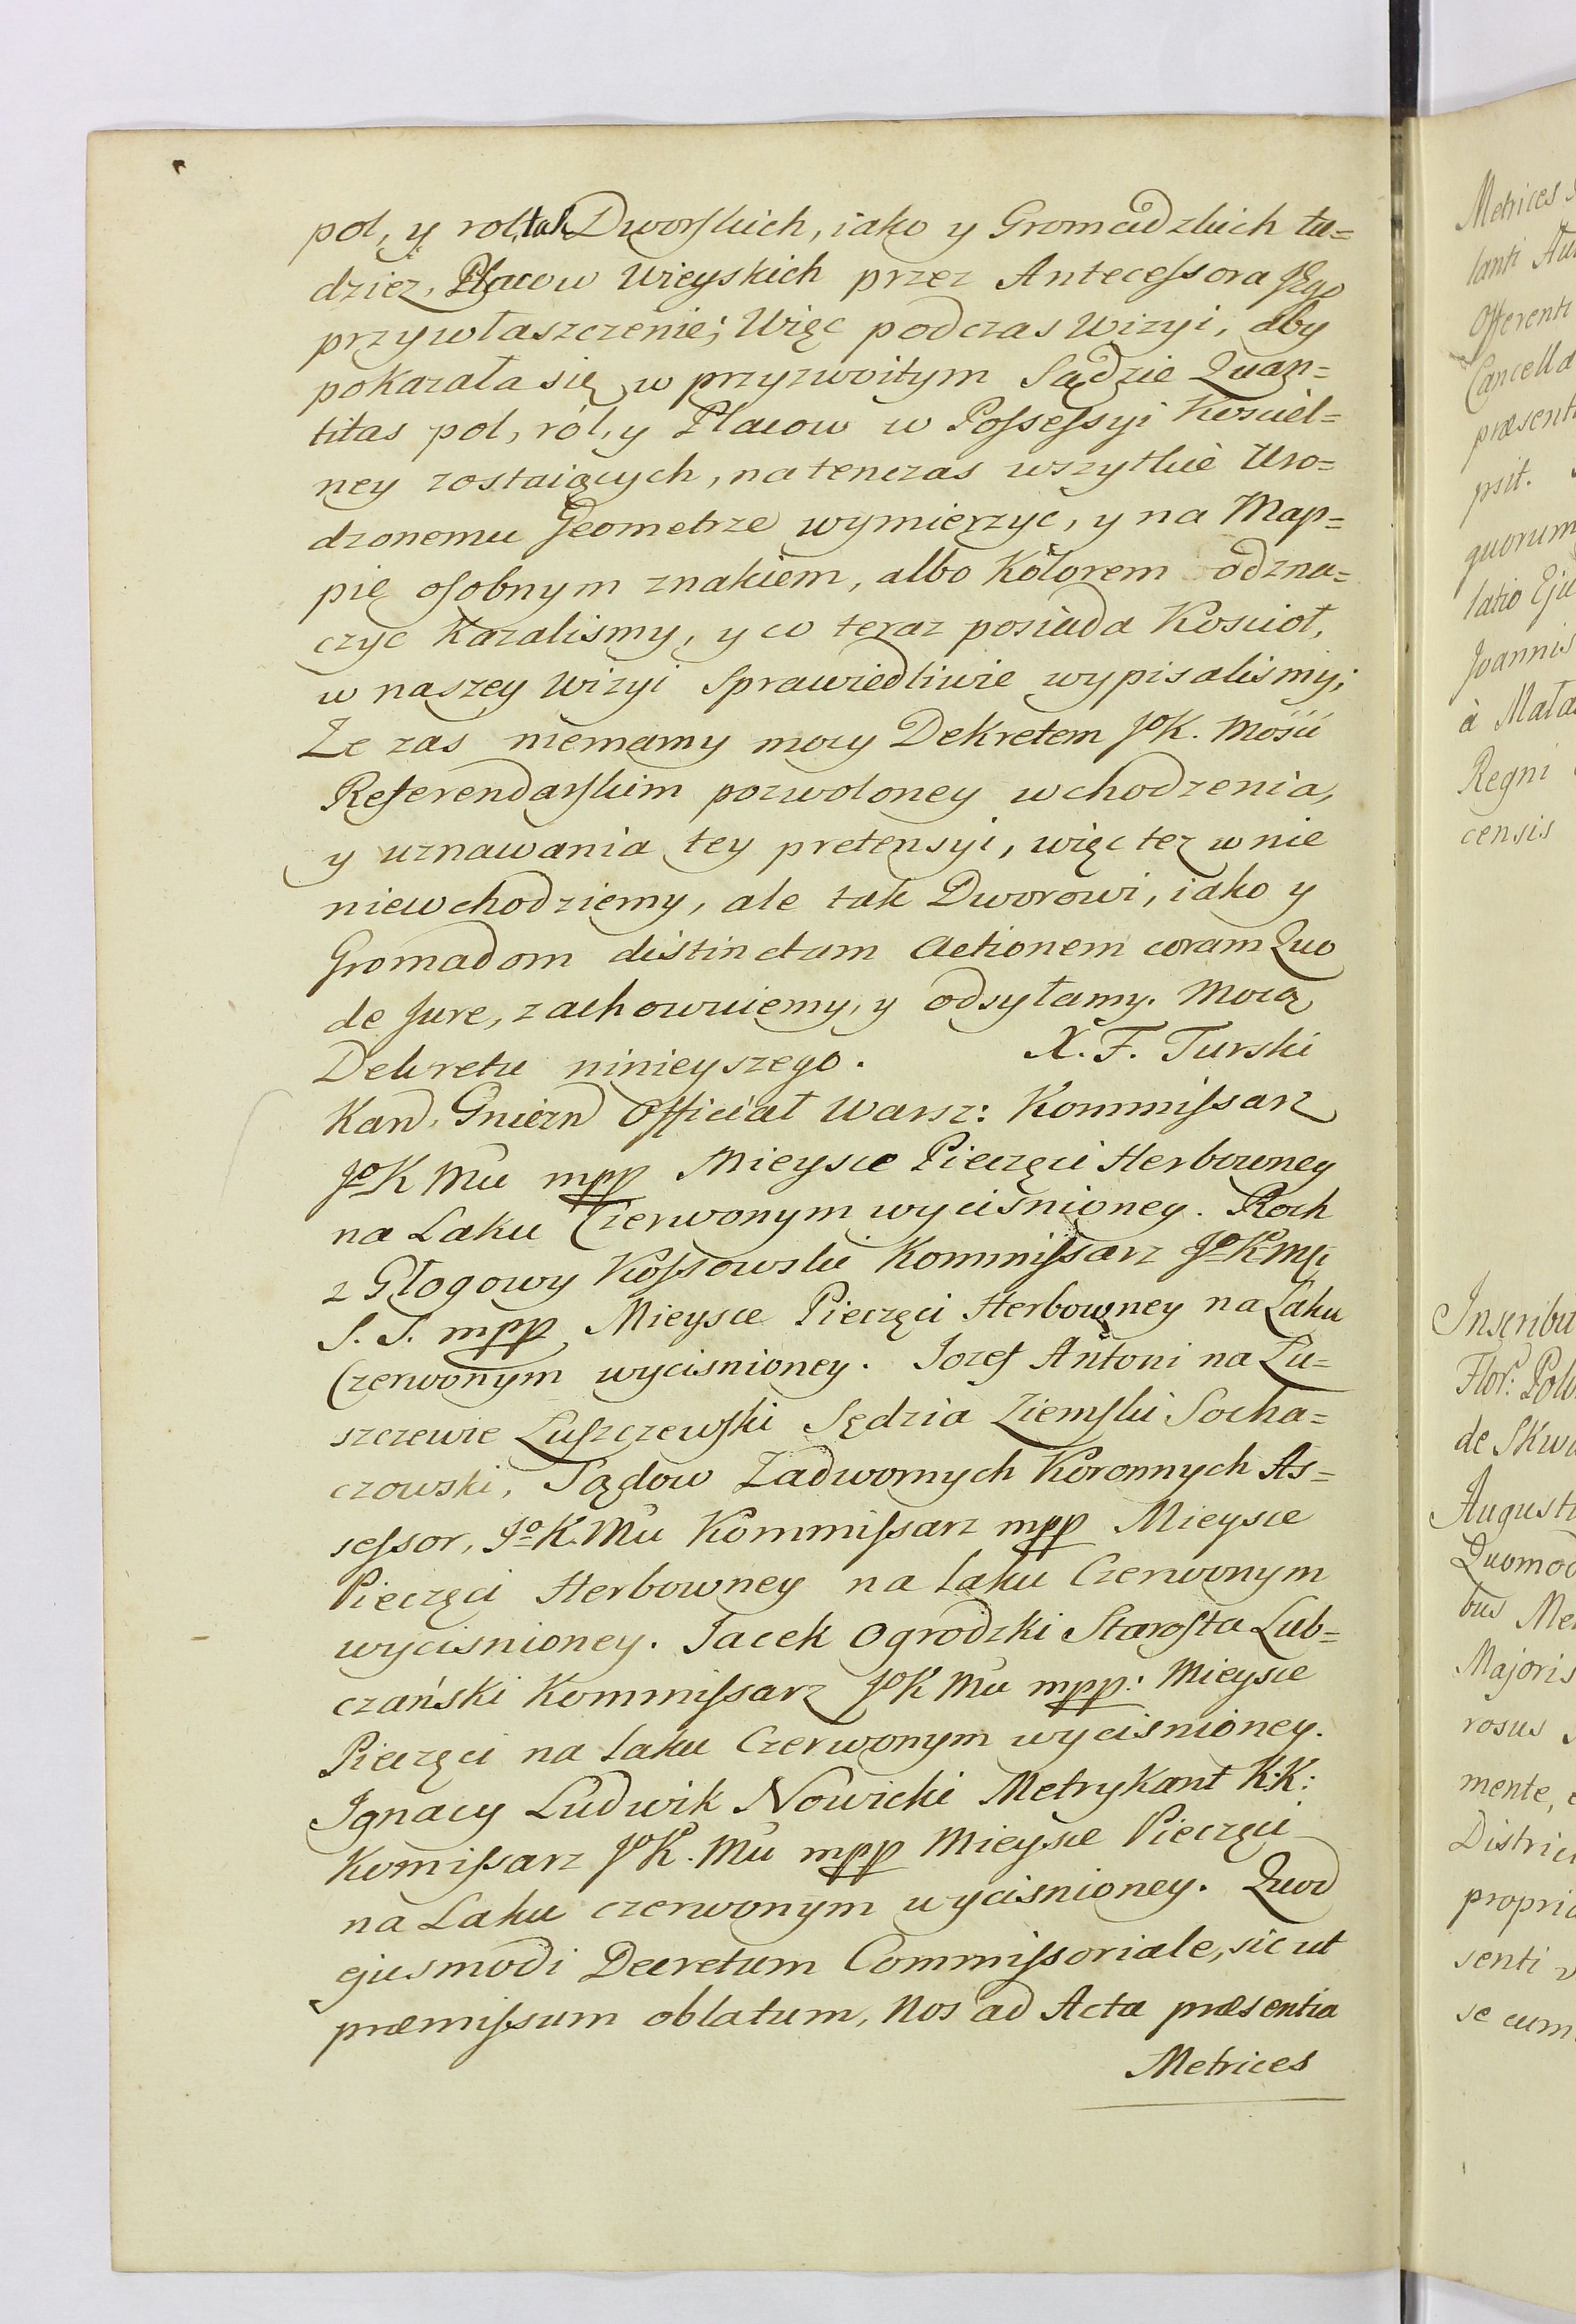 pol, y rol, tak Dworskich, iako y Gromadzkich tu=
dziez, Placow Wieyskich przez Antecessora Jego
przywłaszczenie; Więc podczas Wizyi, aby
pokazała się w przyzwoitym Sądzie Quan=
titas pol, ról, y Placow w Possessyi Kosciel=
ney zostaiących, natenczas wszytkie Uro=
dzonemu Geometrze wymierzyc, y na Map=
pie osobnym znakiem, albo Kolorem odzna=
czyc Kazalismy, y co teraz posiada Kosciot,
w naszey Wizyi Sprawiedliwie wypisalismy;
Ze zas niemamy mocy Dekretem JoK. Mości
Referendarskim pozwoloney wchodzenia,
y uznawania tey pretensyi, więc tez w nie
niewchodziemy, ale tak Dworowi, iako y
Gromadom distinctam Actionem coram Quo
de Jure, zachowuiemy, y odsyłamy. Mocą
Dekretu ninieyszego. X. F. Turski
Kan. Gniezn Officiał Warsz: Kommissarz
JoK Mci mpp Mieysce Pieczęci Herbowney
na Laku Czerwonym wycisnioney. Roch
z Głogowy Kossowski Kommissarz JoK Mci
S. S. mpp Mieysce Pieczęci Herbowney na Laku
Czerwonym wycisnioney. Jozef Antoni na Lu=
szczewie Luszczewski Sędzia Ziemski Socha=
czowski, Sądow Zadwornych Koronnych As=
sessor, JoK. Mci Kommissarz mpp Mieysce
Pieczęci Herbowney na laku Czerwonym
wycisnioney. Jacek Ogrodzki Starosta Lub=
czański Kommissarz JoK Mci mpp: Mieysce
Pieczęci na laku Czerwonym wycisnioney.
Ignacy Ludwik Nowicki Metrykant K:K:
Komissarz JoK. Mci mpp Mieysce Pieczęci
na Laku czerwonym wycisnioney. Quod
ejusmodi Decretum Commissoriale, sic ut
præmissum oblatum, Nos ad Acta præsentia
Metrices
Metrices
lanti
Offerenti
Cancella
præsenti
psit.
quorum
latio Eju
Joannis
à Mała
Regni
censis
Inscribu
Flor: Pol
de Skwa
Augusti
Quomod
bus Me
Majoris
rosus
mente,
Distric
propria
senti
se cum